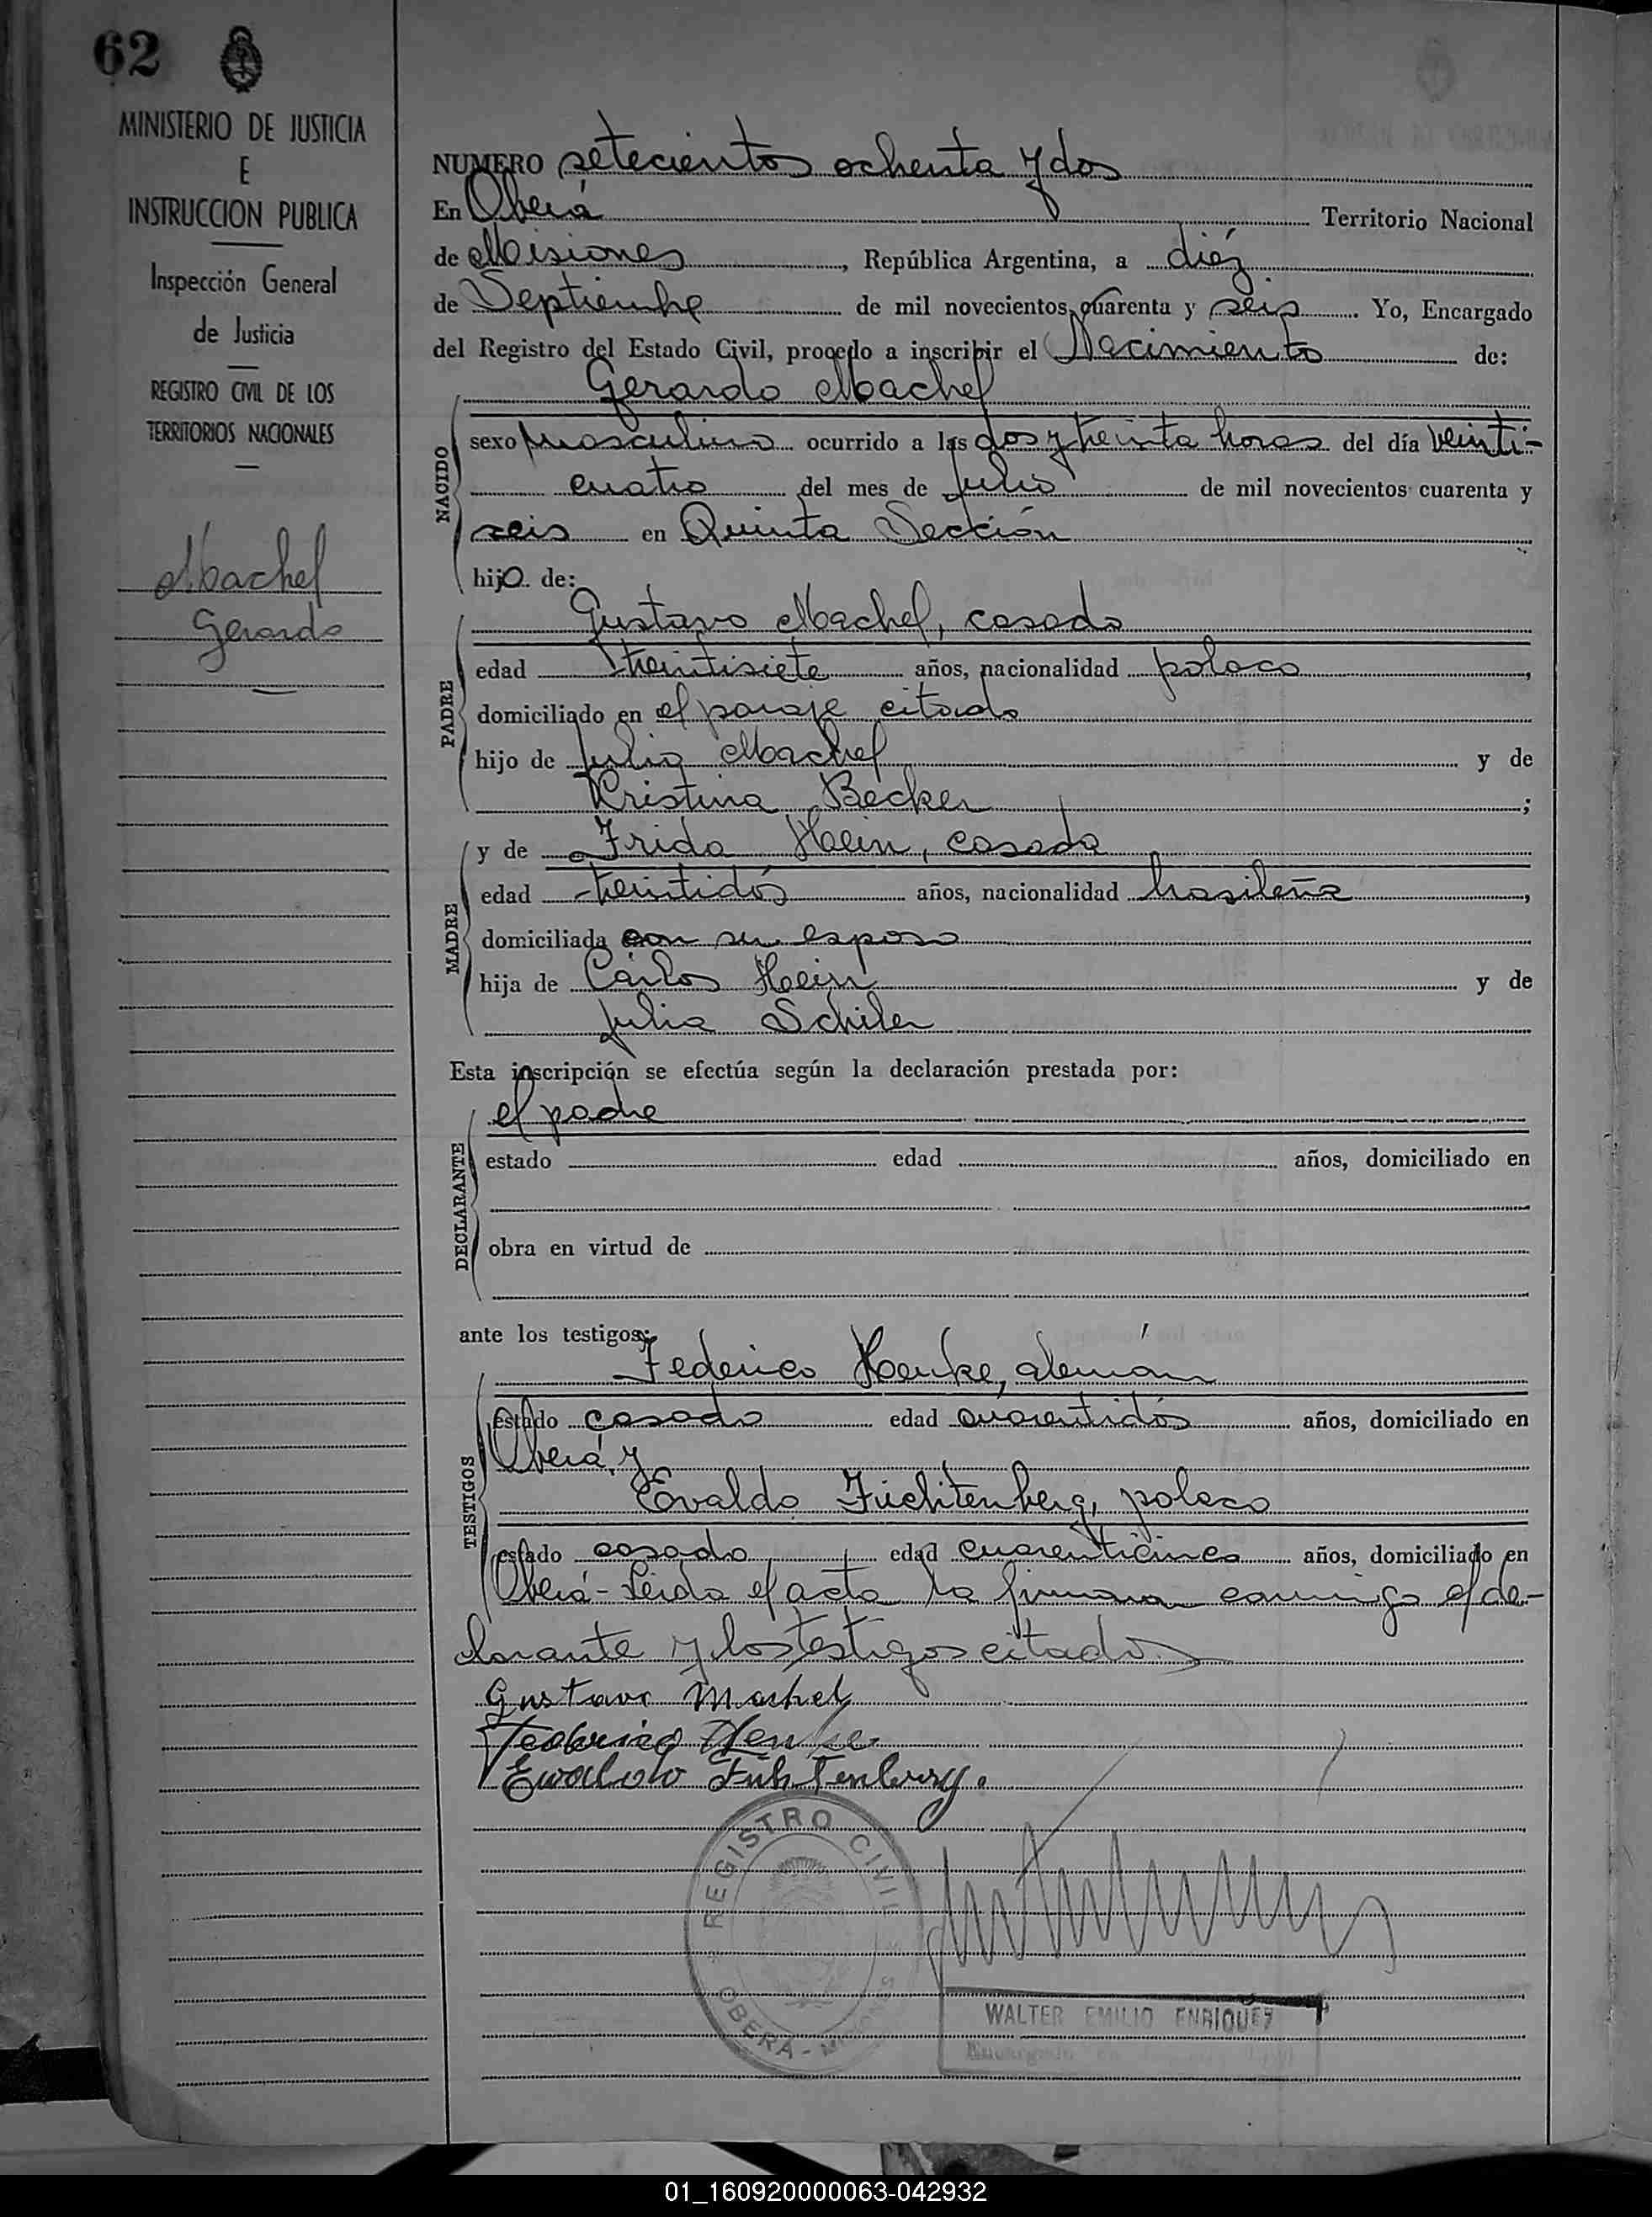 62
MINISTERIO DE JUSTICIA
E
INSTRUCCION PUBLICA
Inspección General
de Justicia
REGISTRO CIVIL DE LOS
TERRITORIOS NACIONALES
Machel
Gerardo
NUMERO setecientos ochenta y dos
En Oberá Territorio Nacional
de Misiones, República Argentina, a diéz
de Septiembre de mil novecientos cuarenta y seis. Yo, Encargado
del Registro del Estado Civil, procedo a inscribir el Nacimiento de:
Gerardo Machel
NACIDO
sexo masculino ocurrido a las dos y treinta horas del día veinti-
cuatro del mes de Julio de mil novecientos cuarenta y
seis en Quinta Sección
hijo de:
PADRE
Gustavo Machel, casado
edad treintisiete años, nacionalidad polaco,
domiciliado en el paraje citado
hijo de Julio Machel y de
Kristina Becker;
MADRE
y de Frida Hein, casada
edad treintidós años, nacionalidad brasileña,
domiciliada con su esposo
hija de Cárlos Hein y de
Julia Schiler
Esta inscripción se efectúa según la declaración prestada por:
DECLARANTE
el padre
estado edad años, domiciliado en
obra en virtud de
ante los testigos:
TESTIGOS
Federico Henke, alemán
estado casado edad cuarentidós años, domiciliado en
Oberá y
Evaldo Füchtenberg, polaco
estado casado edad cuarenticinco años, domiciliado en
Oberá - Leida el acta la firman conmigo el de-
clarante y los testigos citados
Gustavo Machel
Federico Henke.
Ewaldo Fühtenberg.
REGISTRO CIVIL
OBERÁ - MISIONES
WALTER EMILIO ENRIQUEZ
01_160920000063-042932